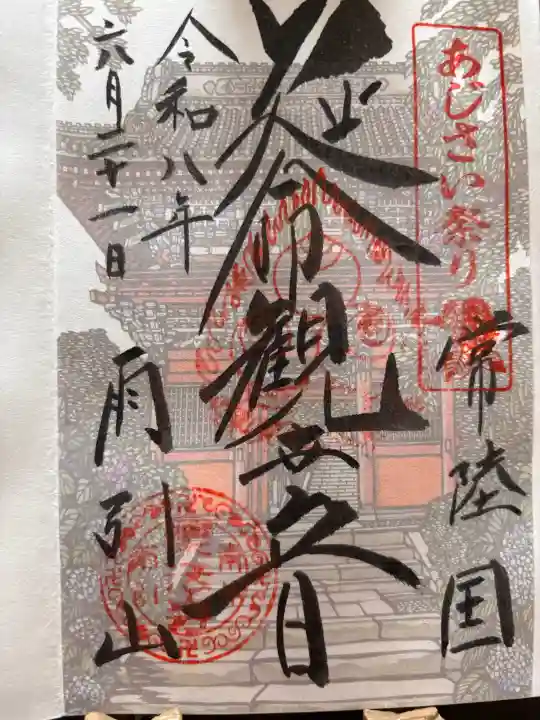 あじさい祭り
常陸国
延命観世音
令和八年
六月二十一日
雨引山